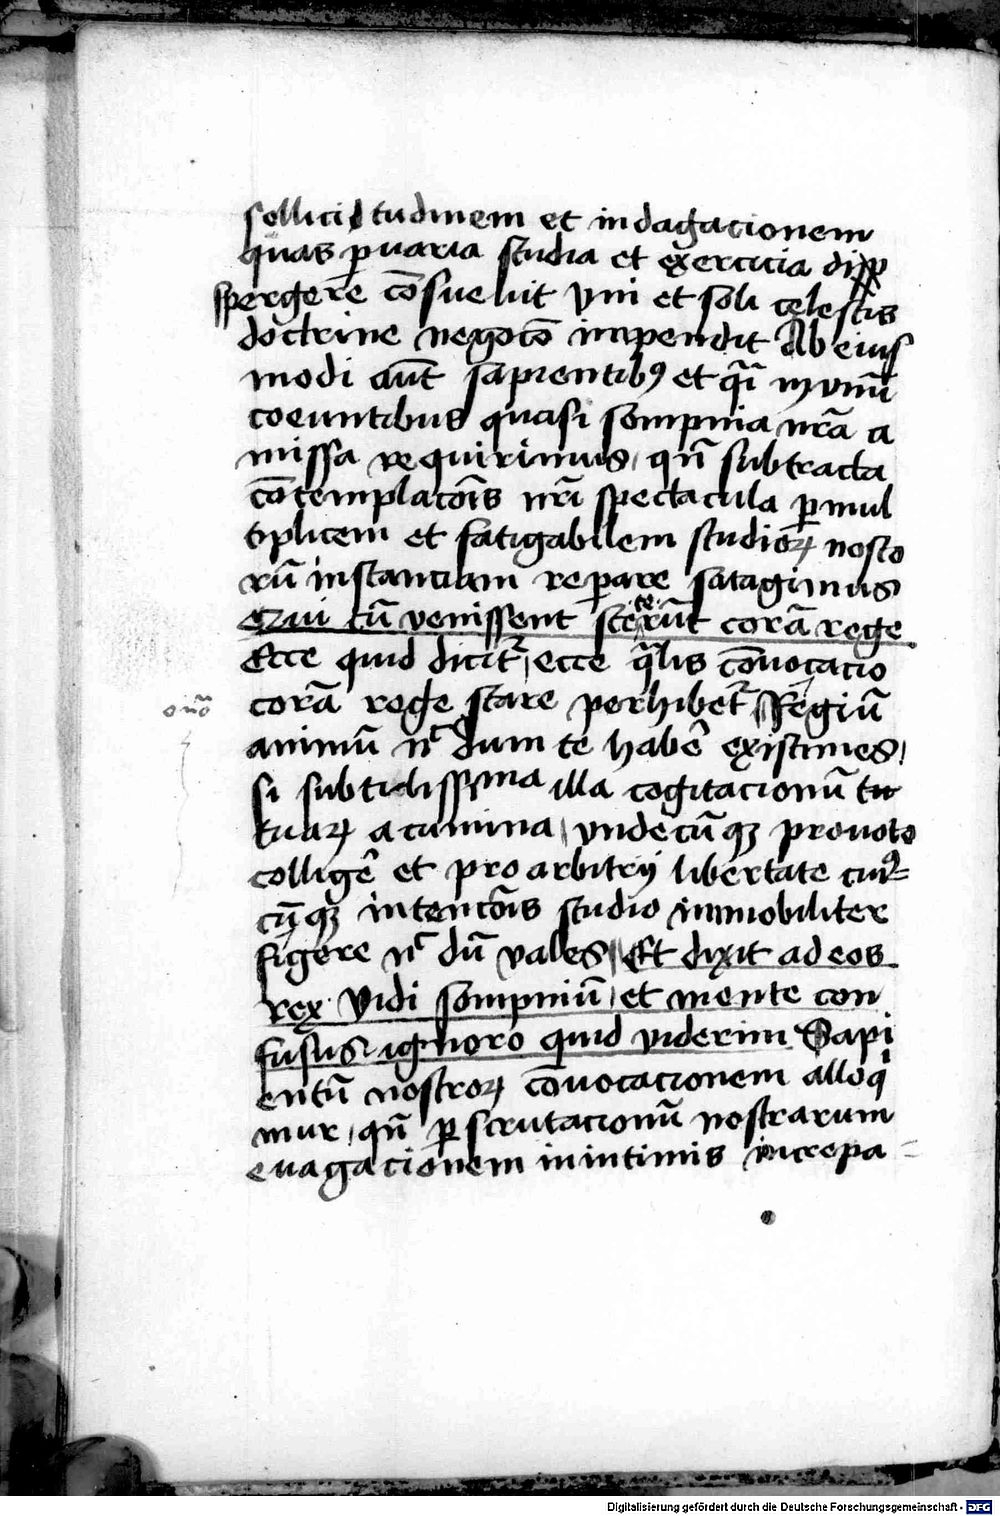 sollicitudinem et indagacionem
quas ꝑ varia studia et exercicia disp
spergere cōsuevit vni et soli celestis
doctrine negocō impendit Ab eius
modi aūt sapientibꝰ et qͣi in vnū
coeuntibus quasi sompnia nrā a
missa requirimus, qn̄ subtracta
cōtemplacōis nrē spectacula ꝑ mul
tiplicem et fatigabilem studioꝝ nosto
rū instanciam reꝑare satagimus
Qui cū venissent steterūt corā rege
Ecce quid dicitᷣ, ecce qͣlis cōvocacio
corā rege stare perhibetᷣ Regiū
animū nͨ dum te habē̓ existimes,
si subtilissima illa cogitacionū tu
tuaꝝ acumina, vndecūqꝫ pro voto
colligē̓ et pro arbitrij libertate cuiꝰ
cūqꝫ intencōis studio immobiliter
figere nͨ dū vales, Et dixit ad eos
rex Vidi sompniū, et mente con
fusus ignoro quid viderim Sapi
entū nostroꝝ cōvocacionem alloqͥ
mur, qn̄ ꝑscrutacionū nostrarum
evagacionem in intimis increpa
Digitalisierung gefördert durch die Deutsche Forschungsgemeinschaft - DFG